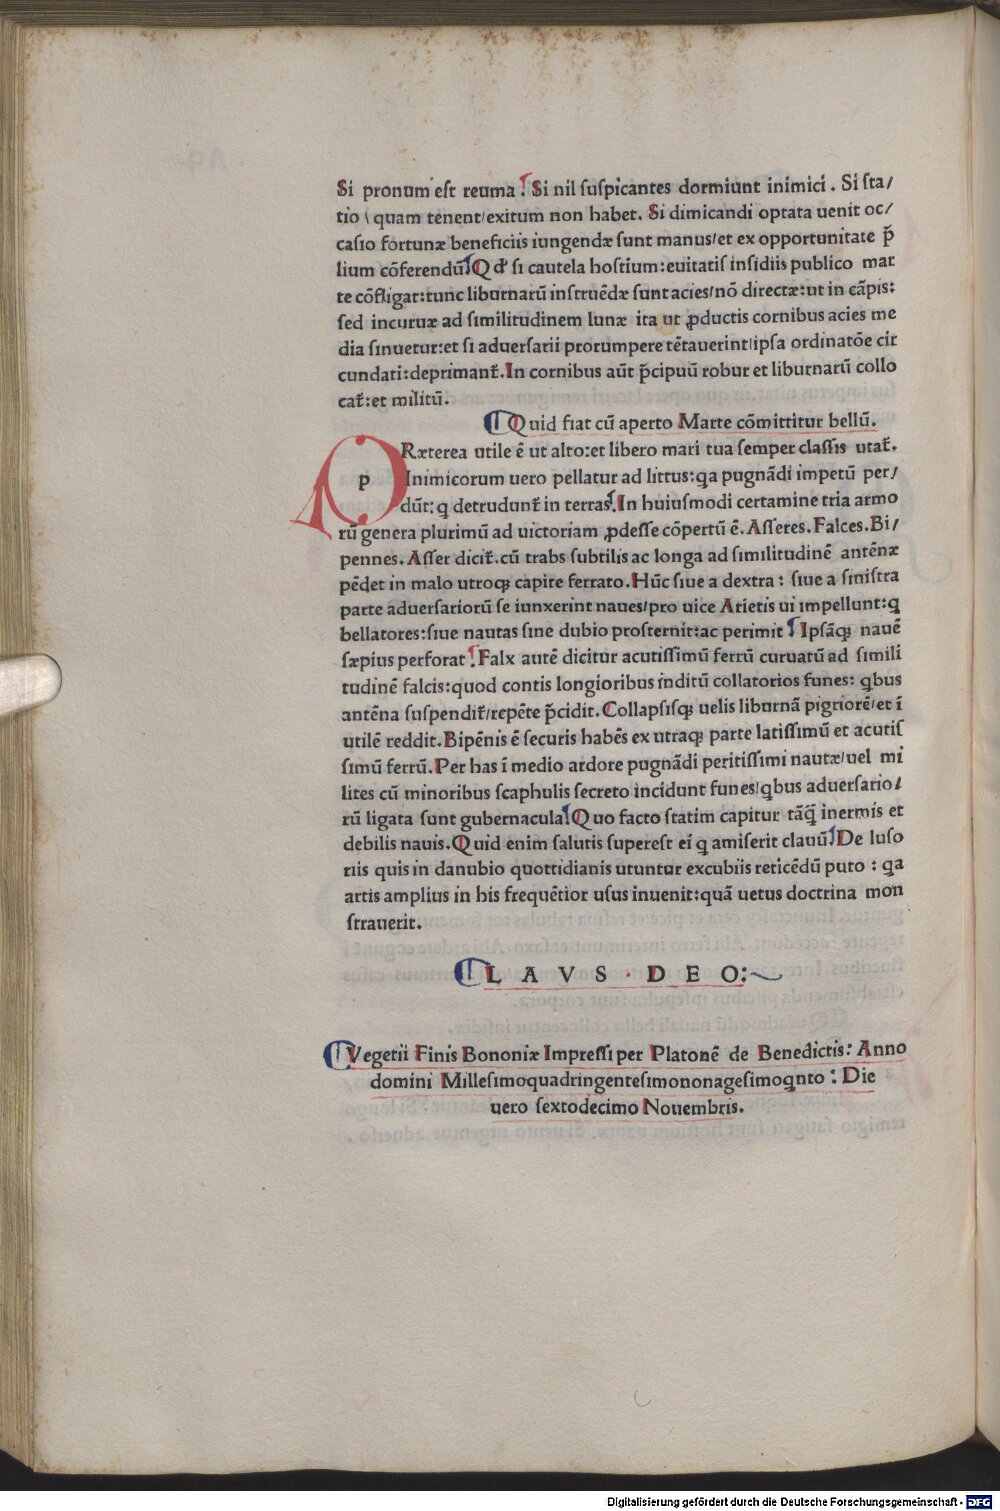 Si pronum est reuma. Si nil suspicantes dormiunt inimici. Si sta/
tio/quam tenent/exitum non habet. Si dimicandi optata uenit oc/
casio fortunæ beneficiis iungendæ sunt manus/et ex opportunitate p̄
lium cōferendū. Qđ si cautela hostium:euitatis insidiis publico mar
te cōfligat:tunc liburnarū instruēdæ sunt acies/nō directæ:ut in cāpis:
sed incuruæ ad similitudinem lunæ ita ut ꝓductis cornibus acies me
dia sinuetur:et si aduersarii prorumpere tētauerint/ipsa ordinatōe cir
cundati:deprimant᷑. In cornibus aūt p̄cipuū robur et liburnarū collo
cat᷑:et militū.
¶ Quid fiat cū aperto Marte cōmittitur bellū.
p Ræterea utile ē ut alto:et libero mari tua semper classis utat᷑.
Inimicorum uero pellatur ad littus:qa pugnādi impetū per/
dūt: q detrudunt᷑ in terras. In huiusmodi certamine tria armo
rū genera plurimū ad uictoriam ꝓdesse cōpertū ē. Asseres. Falces. Bi/
pennes. Asser dicit᷑. cū trabs subtilis ac longa ad similitudinē antēnæ
pēdet in malo utroqꝫ capite ferrato. Hūc siue a dextra: siue a sinistra
parte aduersariorū se iunxerint naues/pro uice Arietis ui impellunt:q
bellatores:siue nautas sine dubio prosternit:ac perimit. Ipsāqꝫ nauē
sæpius perforat. Falx autē dicitur acutissimū ferrū curuatū ad simili
tudinē falcis:quod contis longioribus inditū collatorios funes: qbus
antēna suspendit᷑/repēte p̄cidit. Collapsisqꝫ uelis liburnā pigriorē/et ī
utilē reddit. Bipēnis ē securis habēs ex utraqꝫ parte latissimū et acutis
simū ferrū. Per has ī medio ardore pugnādi peritissimi nautæ/uel mi
lites cū minoribus scaphulis secreto incidunt funes/qbus aduersario/
rū ligata sunt gubernacula. Quo facto statim capitur tāq̄ inermis et
debilis nauis. Quid enim salutis superest ei q amiserit clauū. De luso
riis quis in danubio quottidianis utuntur excubiis reticēdū puto : qa
artis amplius in his frequētior usus inuenit:quā uetus doctrina mon
strauerit.
¶ L A V S . D E O :~
¶ Vegetii Finis Bononiæ Impressi per Platonē de Benedictis: Anno
domini Millesimoquadringentesimononagesimoqnto : Die
uero sextodecimo Nouembris.
Digitalisierung gefördert durch die Deutsche Forschungsgemeinschaft - DFG